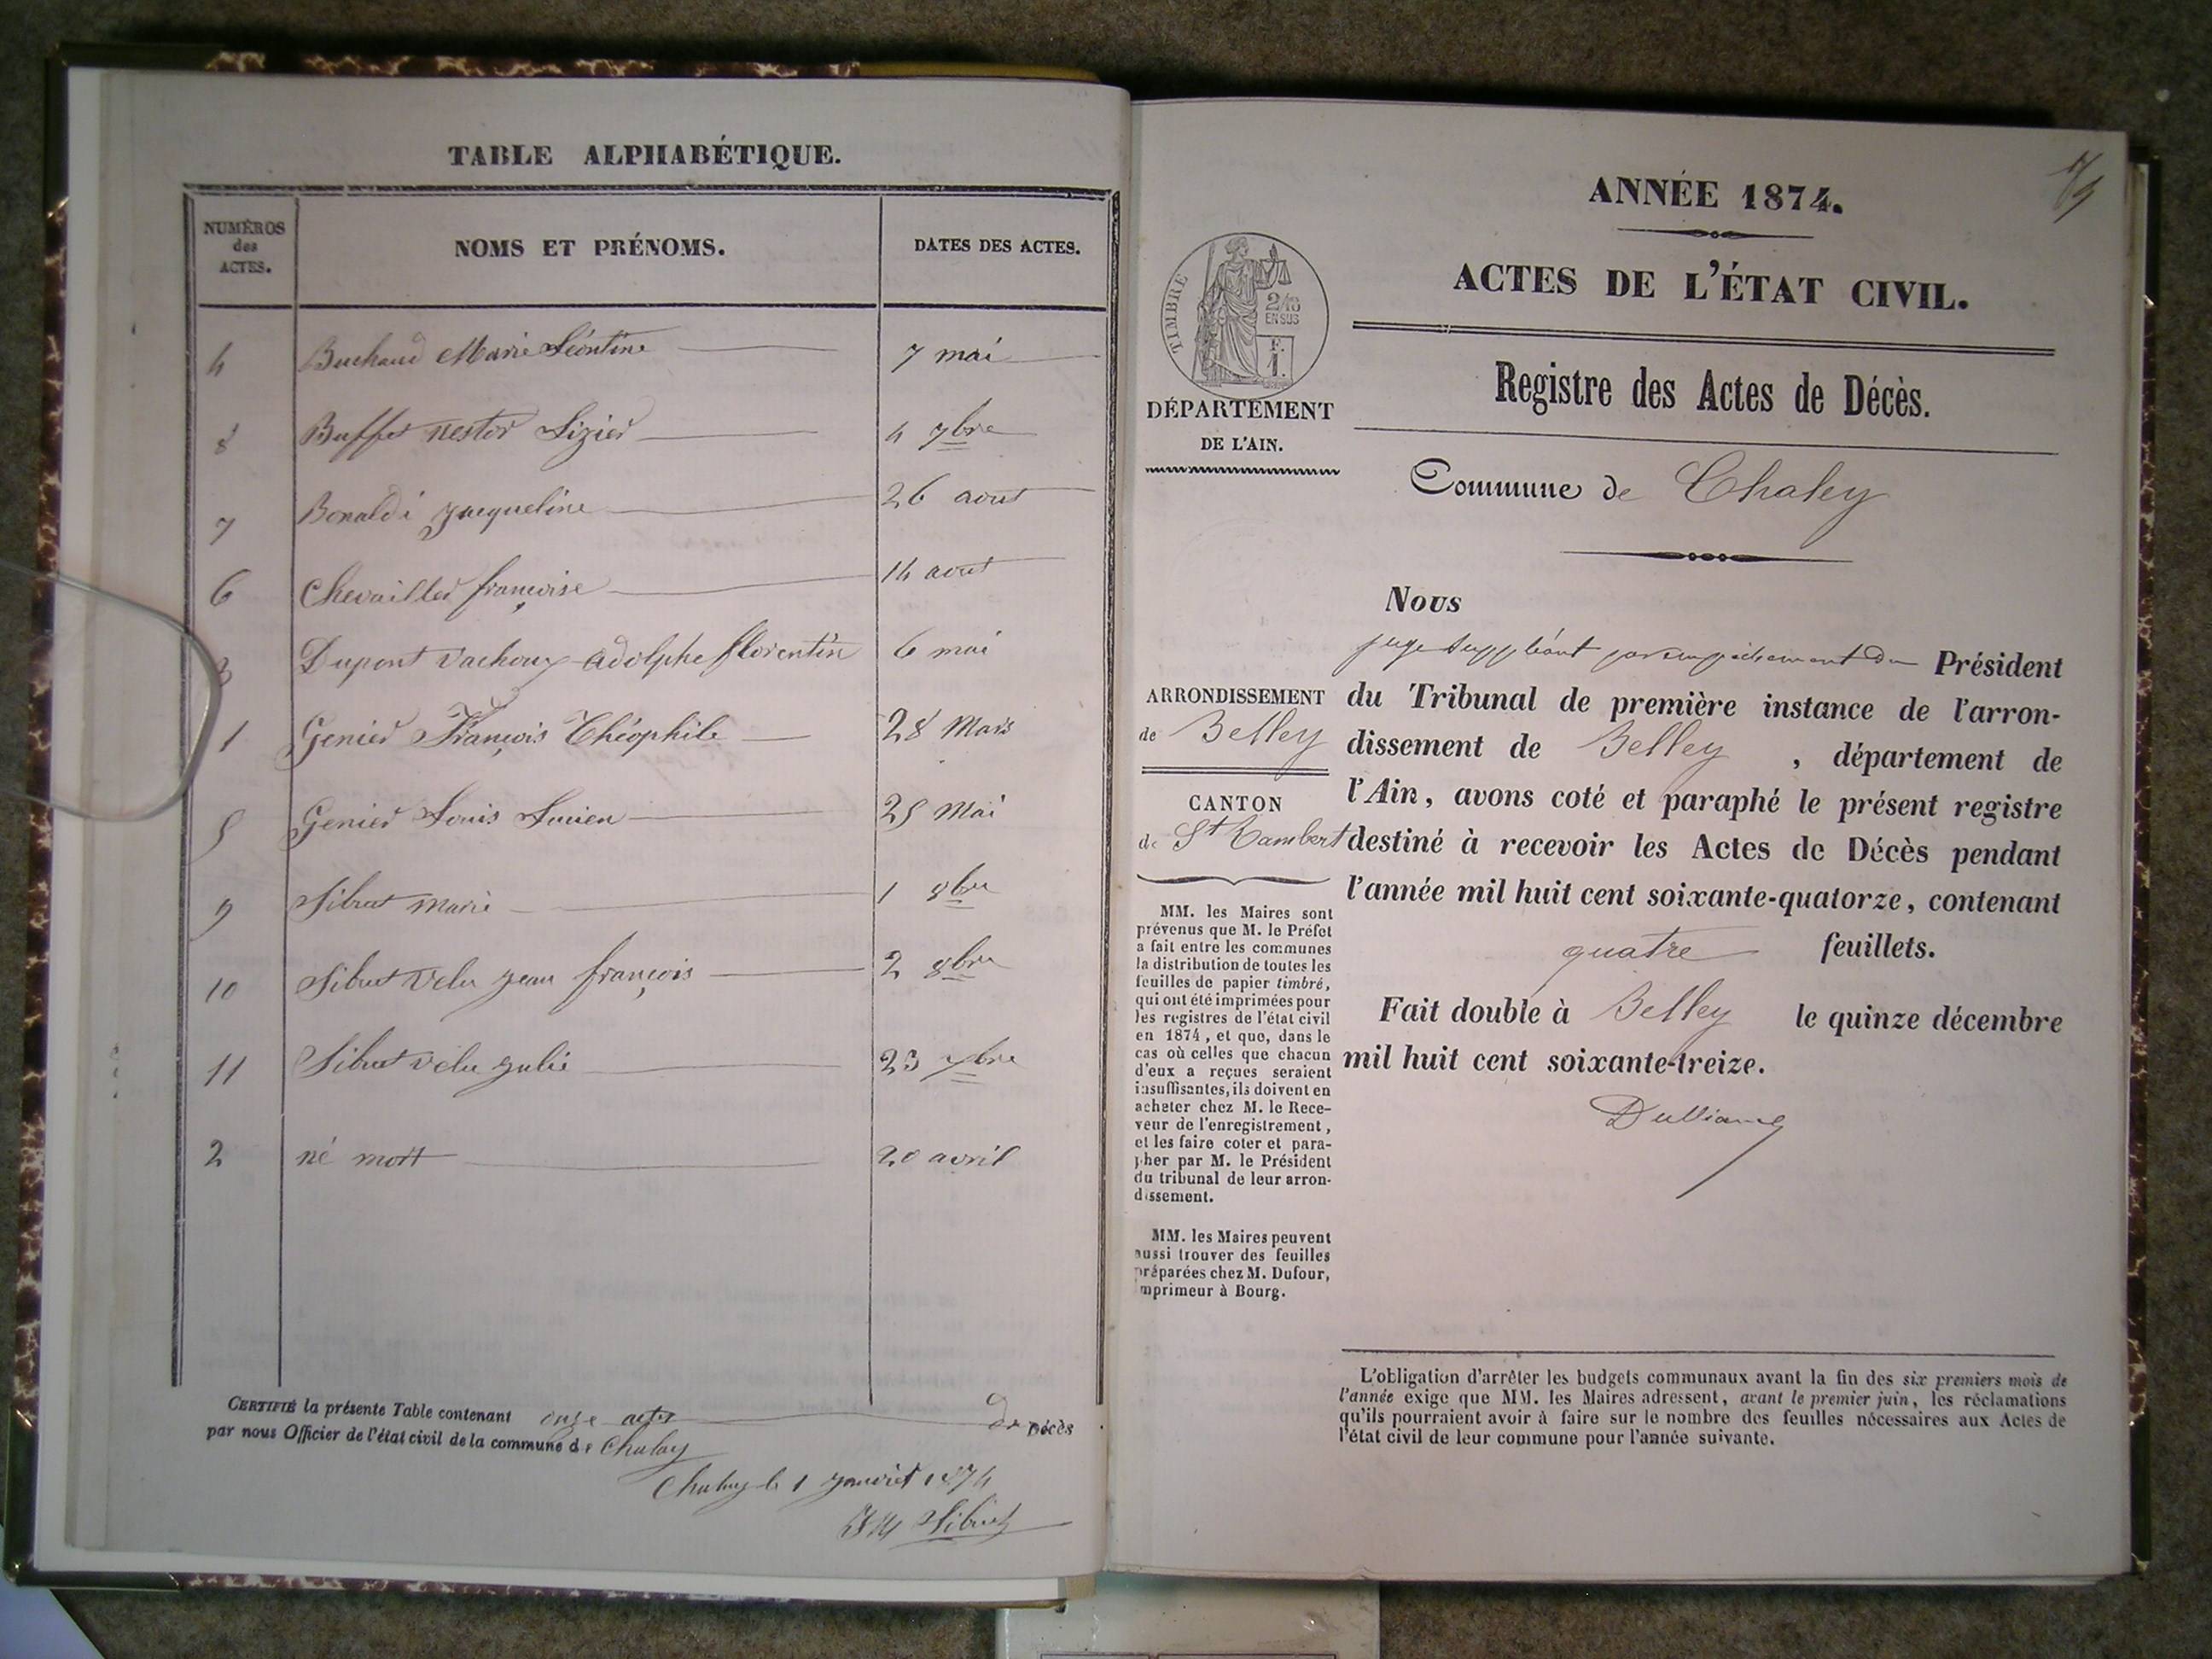 TABLE ALPHABÉTIQUE.
NUMÉROS
des
ACTES.
NOMS ET PRÉNOMS.
DATES DES ACTES.
4 Buchaud Marie Léontine 7 mai
8 Buffet nestor Lizier 4 7bre
7 Bonaldi jacqueline 26 aout
6 Chevailler françoise 14 aout
3 Dupont Vachoux Adolphe florentin 6 mai
1 Genier François Théophile 28 Mars
5 Genier Louis Lucien 25 Mai
9 Sibuet marie 1 8bre
10 Sibuet Velu jean françois 2 8bre
11 Sibuet velu julie 23
2 né mort 20 avril
CERTIFIÉ la présente Table contenant onze actes de Décès
par nous Officier de l'état civil de la commune de Chaley
Chaley le 1 janvier 1874
Sibuet
ANNÉE 1874.
ACTES DE L'ÉTAT CIVIL.
Registre des Actes de Décès.
Commune de Chaley
TIMBRE
2/10
EN SUS
F.
1.
DÉPARTEMENT
DE L'AIN.
ARRONDISSEMENT
de Belley
CANTON
de St Rambert
MM. les Maires sont
prévenus que M. le Préfet
a fait entre les communes
la distribution de toutes les
feuilles de papier timbré,
qui ont été imprimées pour
les registres de l'état civil
en 1874, et que, dans le
cas où celles que chacun
d'eux a reçues seraient
insuffisantes, ils doivent en
acheter chez M. le Rece-
veur de l'enregistrement,
et les faire coter et para-
pher par M. le Président
du tribunal de leur arron-
dissement.
MM. les Maires peuvent
aussi trouver des feuilles
préparées chez M. Dufour,
imprimeur à Bourg.
Nous
juge suppléant par empêchement du Président
du Tribunal de première instance de l'arron-
dissement de Belley, département de
l'Ain, avons coté et paraphé le présent registre
destiné à recevoir les Actes de Décès pendant
l'année mil huit cent soixante-quatorze, contenant
quatre feuillets.
Fait double à Belley le quinze décembre
mil huit cent soixante-treize.
L'obligation d'arrêter les budgets communaux avant la fin des six premiers mois de
l'année exige que MM. les Maires adressent, avant le premier juin, les réclamations
qu'ils pourraient avoir à faire sur le nombre des feuilles nécessaires aux Actes de
l'état civil de leur commune pour l'année suivante.